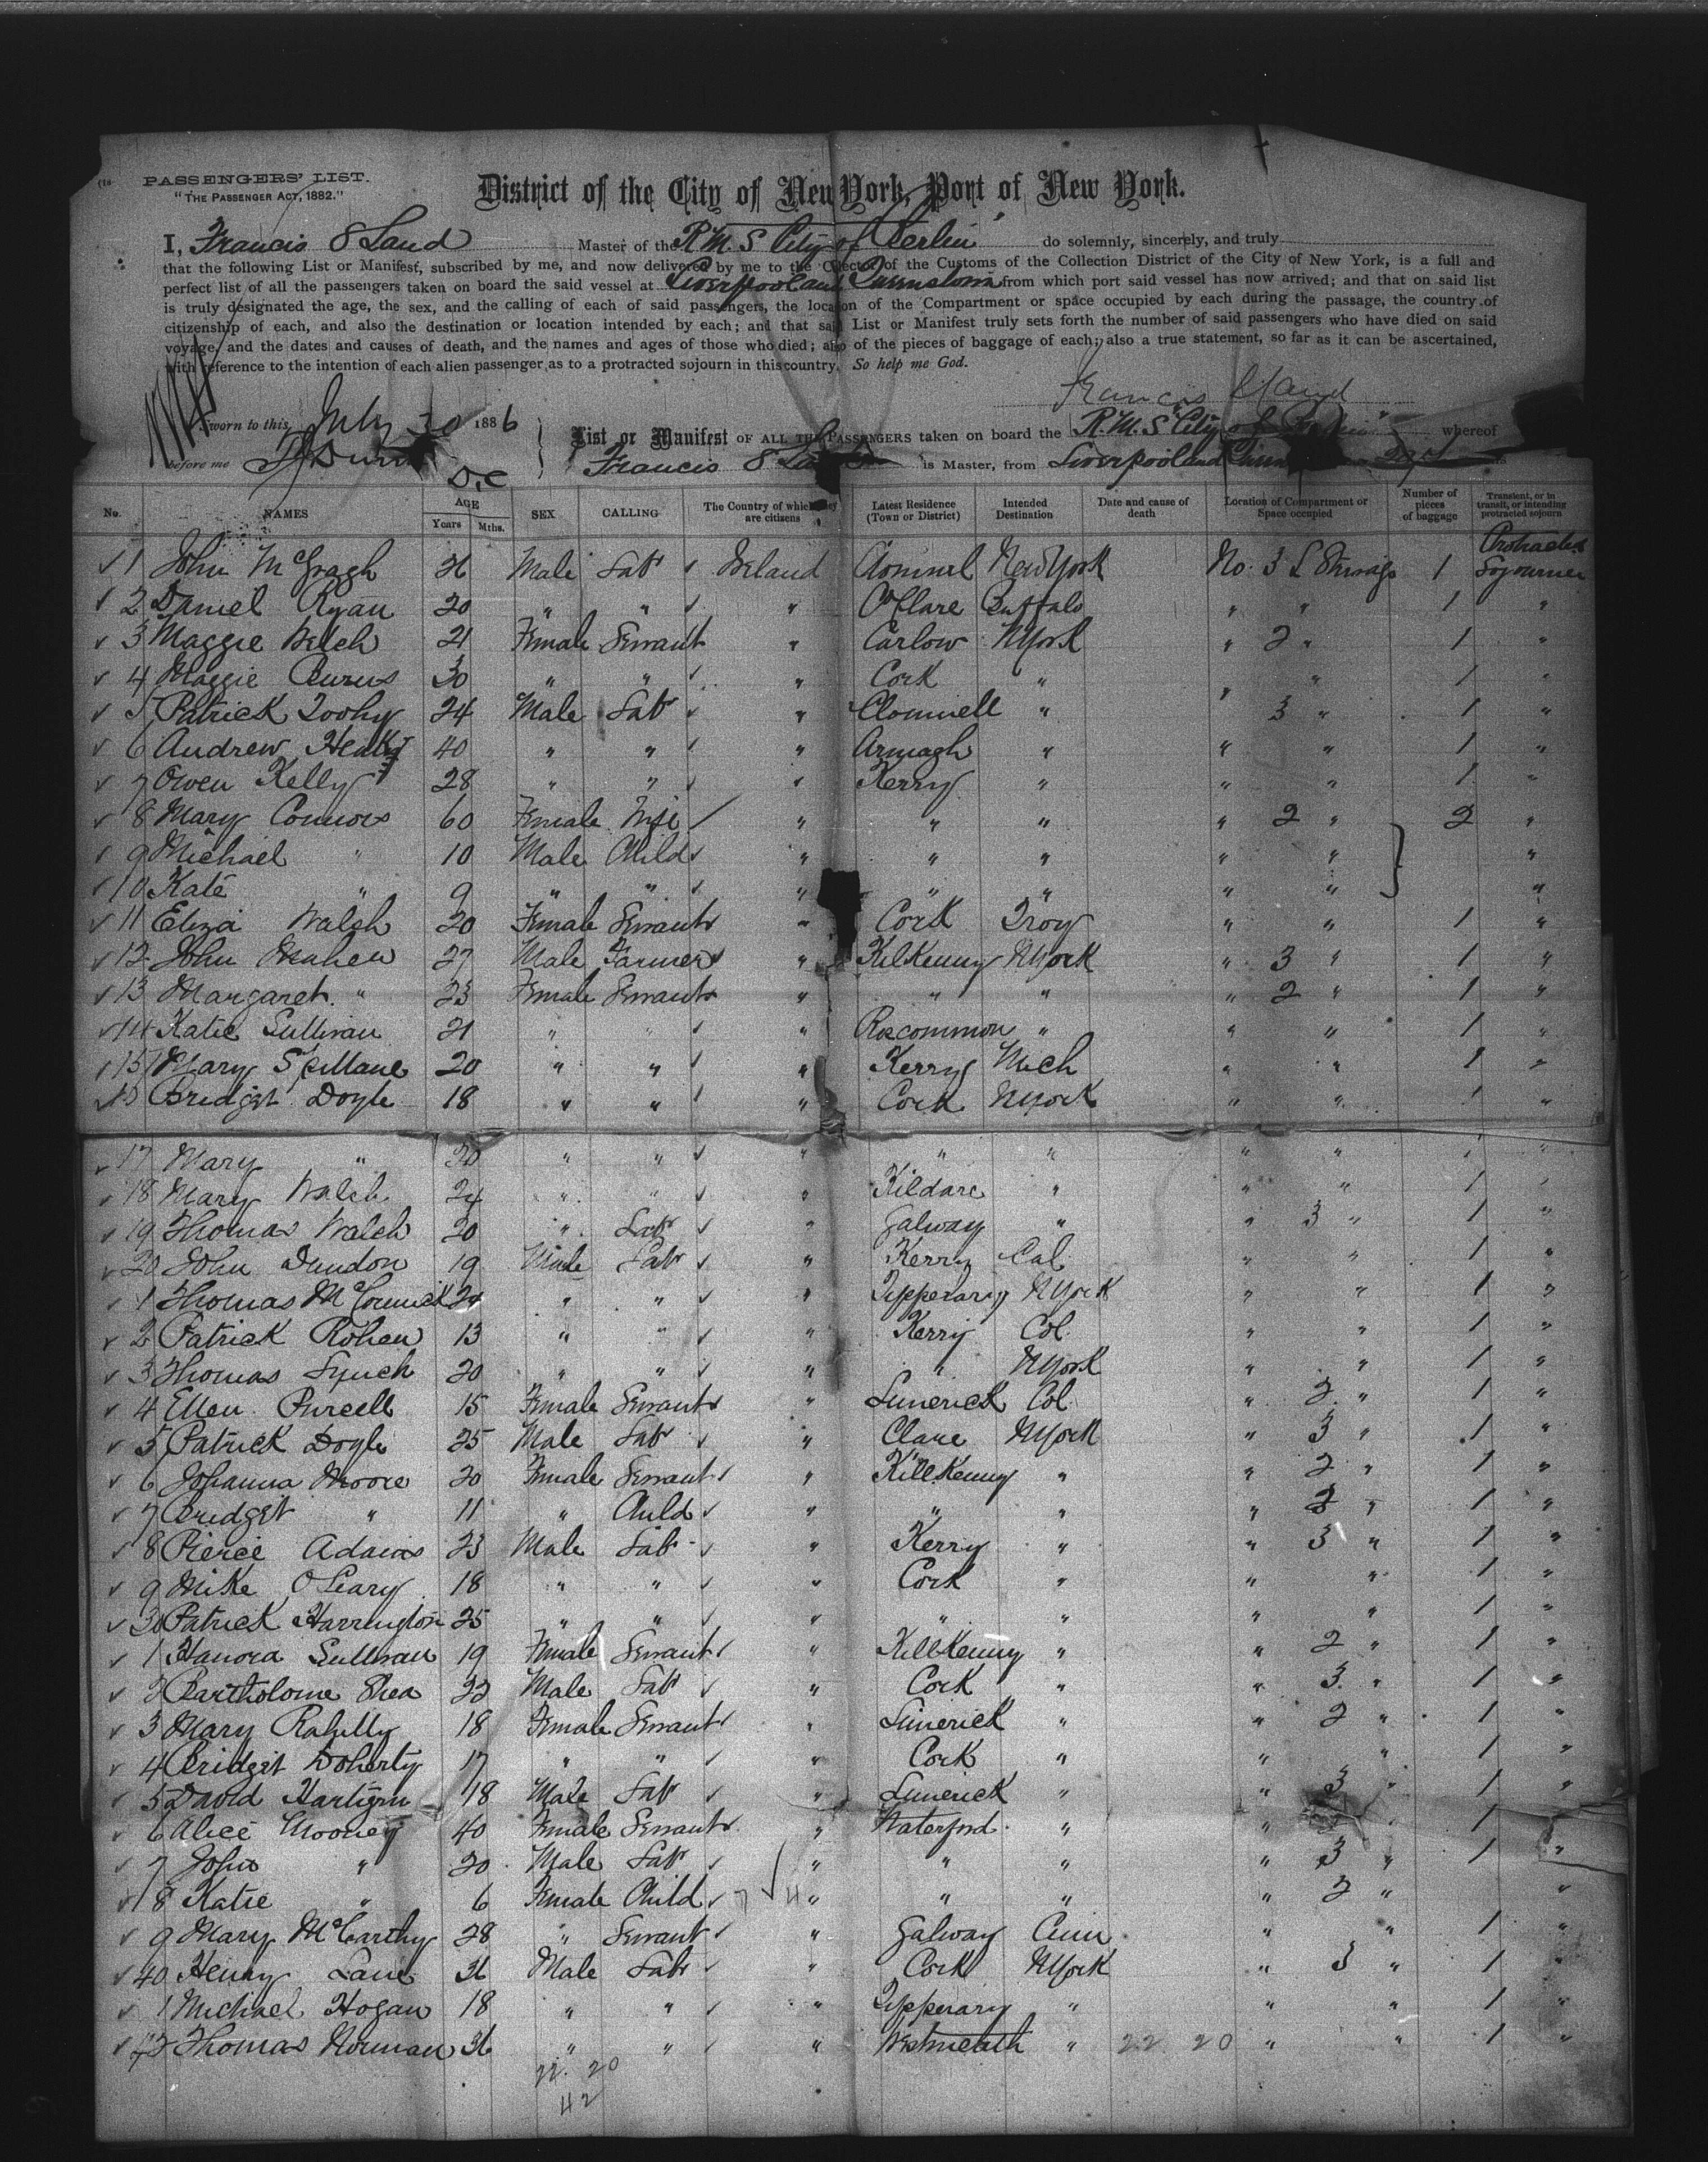 PASSENGERS' LIST.
"THE PASSENGER ACT, 1882."
District of the City of New York, Port of New York.
I, Francis S Land Master of the R.M.S City of Berlin do solemnly, sincerely, and truly
that the following List or Manifest, subscribed by me, and now delivered by me to the Collector of the Customs of the Collection District of the City of New York, is a full and
perfect list of all the passengers taken on board the said vessel at Liverpool and Queenstown from which port said vessel has now arrived; and that on said list
is truly designated the age, the sex, and the calling of each of said passengers, the location of the Compartment or space occupied by each during the passage, the country of
citizenship of each, and also the destination or location intended by each; and that said List or Manifest truly sets forth the number of said passengers who have died on said
voyage, and the dates and causes of death, and the names and ages of those who died; also of the pieces of baggage of each; also a true statement, so far as it can be ascertained,
with reference to the intention of each alien passenger as to a protracted sojourn in this country. So help me God.
Francis S Land
Sworn to this July 30 1886
before me
List or Manifest OF ALL THE PASSENGERS taken on board the R.M.S City of Berlin whereof
Francis S Land is Master, from Liverpool and
No. NAMES AGE Years Mths. SEX CALLING The Country of which they are citizens Latest Residence (Town or District) Intended Destination Date and cause of death Location of Compartment or Space occupied Number of pieces of baggage Transient, or in transit, or intending protracted sojourn
1 John McGragh 26 Male Lab Ireland New York No. 3 1 Protracted Sojourner
2 Daniel Ryan 20 " " " Co Clare Buffalo " " 1 "
3 Maggie Welch 21 Female Servant " Carlow N York " 2 " 1 "
4 Maggie Burns 30 " " " Cork " " " 1 "
5 Patrick Toohy 24 Male Lab " Clonmell " " 3 " 1 "
6 Andrew Healy 40 " " " Armagh " " " 1 "
7 Owen Kelly 28 " " " Kerry " " " 1 "
8 Mary Connors 60 Female Wife " " " " 2 " 2 "
9 Michael " 10 Male Child " " " " " "
10 Kate " 9 " " " " " " " "
11 Eliza Walsh 20 Female Servant " Cork Troy " " 1 "
12 John Meahen 27 Male Farmer " Kilkenny N York " 3 " 1 "
13 Margaret " 23 Female Servant " " " " 2 " 1 "
14 Katie Sullivan 21 " " " Roscommon " " " 1 "
15 Mary Spillane 20 " " " Kerry Mich " " 1 "
16 Bridget Doyle 18 " " " Cork N York " " 1 "
17 Mary " 20 " " " " " " " " "
18 Mary Walsh 24 " " " Kildare " " " 1 "
19 Thomas Welch 20 " Lab " Galway " " 3 " 1 "
20 John Dundon 19 Male Lab " Kerry Cal " " 1 "
1 Thomas McCormick 24 " " " Tipperary N York " " 1 "
2 Patrick Rohen 13 " " " Kerry Col. " " 1 "
3 Thomas Lynch 20 " " " " N York " " 1 "
4 Ellen Purcell 15 Female Servant " Limerick Col. " 2 " 1 "
5 Patrick Doyle 25 Male Lab " Clare N York " 3 " 1 "
6 Johanna Moore 20 Female Servant " Killkenny " " 2 " 1 "
7 Bridget " 11 " Child " " " " 2 " 1 "
8 Pierce Adams 23 Male Lab " Kerry " " 3 " 1 "
9 Mike O'Leary 18 " " " Cork " " " 1 "
30 Patrick Harrington 25 " " " " " " " 1 "
1 Hanora Sullivan 19 Female Servant " Killkenny " " 2 " 1 "
2 Bartholome Shea 22 Male Lab " Cork " " 3 " 1 "
3 Mary Rahilly 18 Female Servant " Limerick " " 2 " 1 "
4 Bridget Doherty 17 " " " Cork " " " 1 "
5 David Hartigan 18 Male Lab " Limerick " " 3 " 1 "
6 Alice Mooney 40 Female Servant " Waterford " " " 1 "
7 John " 20 Male Lab " " " " 3 " 1 "
8 Katie " 6 Female Child " " " " 2 " "
9 Mary McCarthy 28 " Servant " Galway Cinn " " 1 "
40 Henry Lane 36 Male Lab " Cork N York " 3 " 1 "
1 Michael Hogan 18 " " " Tipperary " " " 1 "
42 Thomas Norman 36 " " " Westmeath " 22 20 " " 1 "
22. 20
42